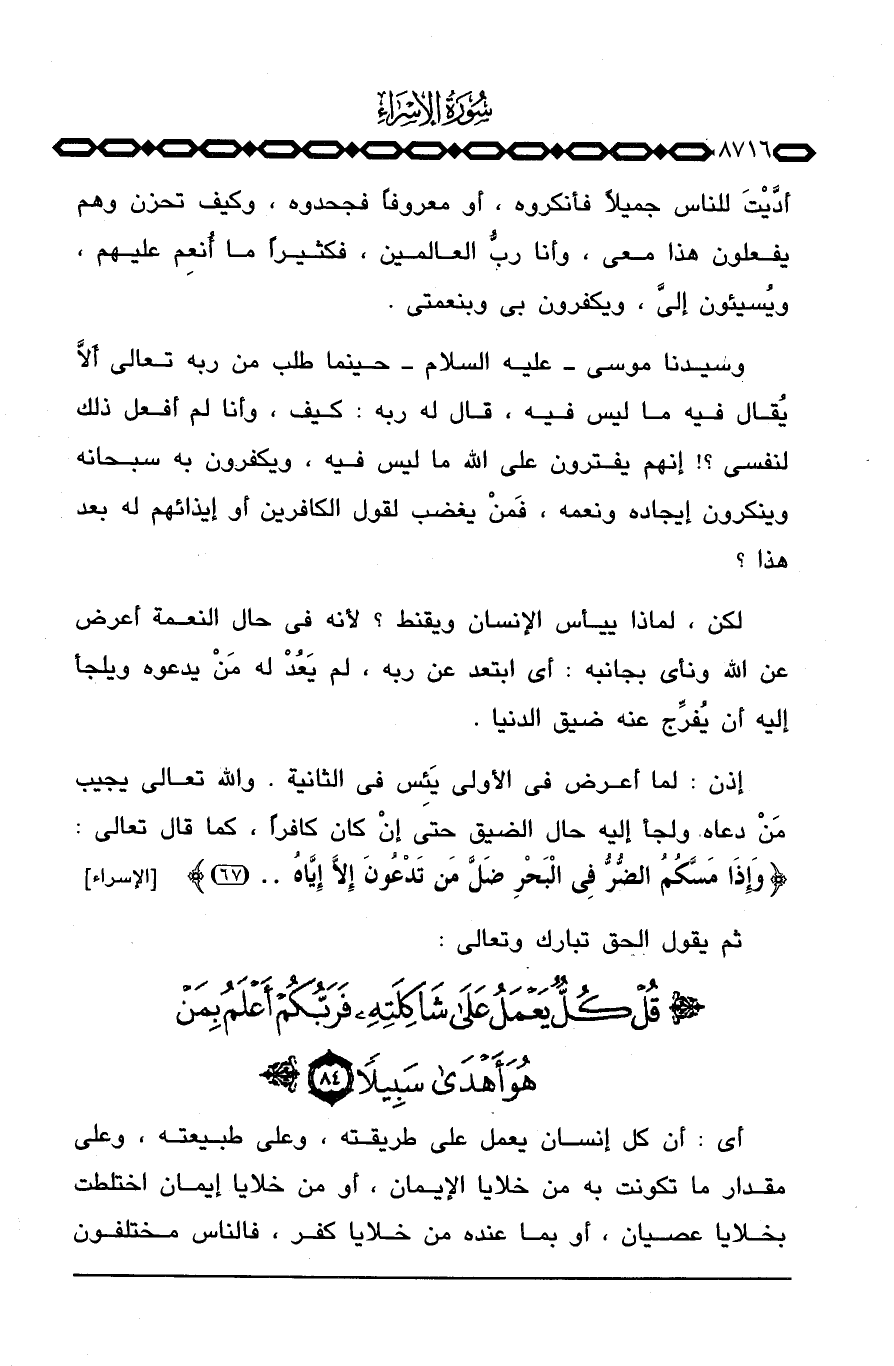 سُورَةُ الإِسْرَاءِ
٨٧١٦
أدَّيْتَ للناس جميلاً فأنكروه ، أو معروفاً فجحدوه ، وكيف تحزن وهم
يفعلون هذا معى ، وأنا ربُّ العالمين ، فكثيراً ما أُنعِم عليهم ،
ويُسيئون إلىَّ ، ويكفرون بى وبنعمتى .
وسيدنا موسى - عليه السلام - حينما طلب من ربه تعالى ألاَّ
يُقال فيه ما ليس فيه ، قال له ربه : كيف ، وأنا لم أفعل ذلك
لنفسى ؟! إنهم يفترون على الله ما ليس فيه ، ويكفرون به سبحانه
وينكرون إيجاده ونعمه ، فَمنْ يغضب لقول الكافرين أو إيذائهم له بعد
هذا ؟
لكن ، لماذا ييأس الإنسان ويقنط ؟ لأنه فى حال النعمة أعرض
عن الله ونأى بجانبه : أى ابتعد عن ربه ، لم يَعُدْ له مَنْ يدعوه ويلجأ
إليه أن يُفرِّج عنه ضيق الدنيا .
إذن : لما أعرض فى الأولى يَئِس فى الثانية . والله تعالى يجيب
مَنْ دعاه ولجأ إليه حال الضيق حتى إنْ كان كافراً ، كما قال تعالى :
﴿ وَإِذَا مَسَّكُمُ الضُّرُّ فِى الْبَحْرِ ضَلَّ مَن تَدْعُونَ إِلاَّ إِيَّاهُ .. (٦٧) ﴾ [الإسراء]
ثم يقول الحق تبارك وتعالى :
﴿ قُلْ كُلٌّ يَعْمَلُ عَلَىٰ شَاكِلَتِهِۦ فَرَبُّكُمْ أَعْلَمُ بِمَنْ
هُوَ أَهْدَىٰ سَبِيلًا ٨٤ ﴾
أى : أن كل إنسان يعمل على طريقته ، وعلى طبيعته ، وعلى
مقدار ما تكونت به من خلايا الإيمان ، أو من خلايا إيمان اختلطت
بخلايا عصيان ، أو بما عنده من خلايا كفر ، فالناس مختلفون